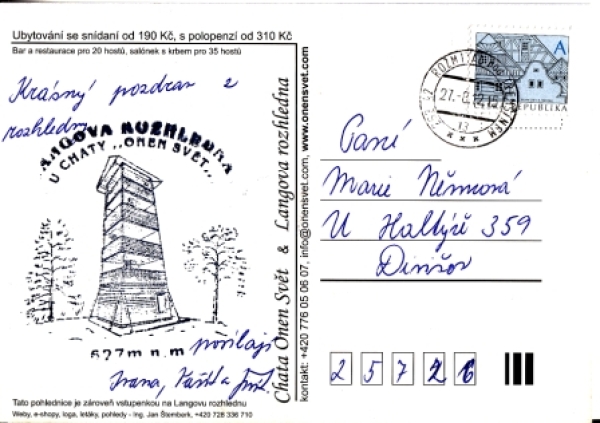 Ubytování se snídaní od 190 Kč, s polopenzí od 310 Kč
Bar a restaurace pro 20 hostů, salónek s krbem pro 35 hostů
Krásný pozdrav z
rozhledny
LANGOVA ROZHLEDNA
U CHATY „ONEN SVĚT“
627 m n. m
posílají
Ivana,
Tato pohlednice je zároveň vstupenkou na Langovu rozhlednu
Weby, e-shopy, loga, letáky, pohledy - Ing. Jan Šlemberk, +420 728 336 710
Chata Onen Svět & Langova rozhledna
kontakt: +420 776 05 06 07, info@onensvet.com, www.onensvet.com
A
REPUBLIKA
Paní
Marie Němcová
U Haltýře 359
2 5 7 2 6